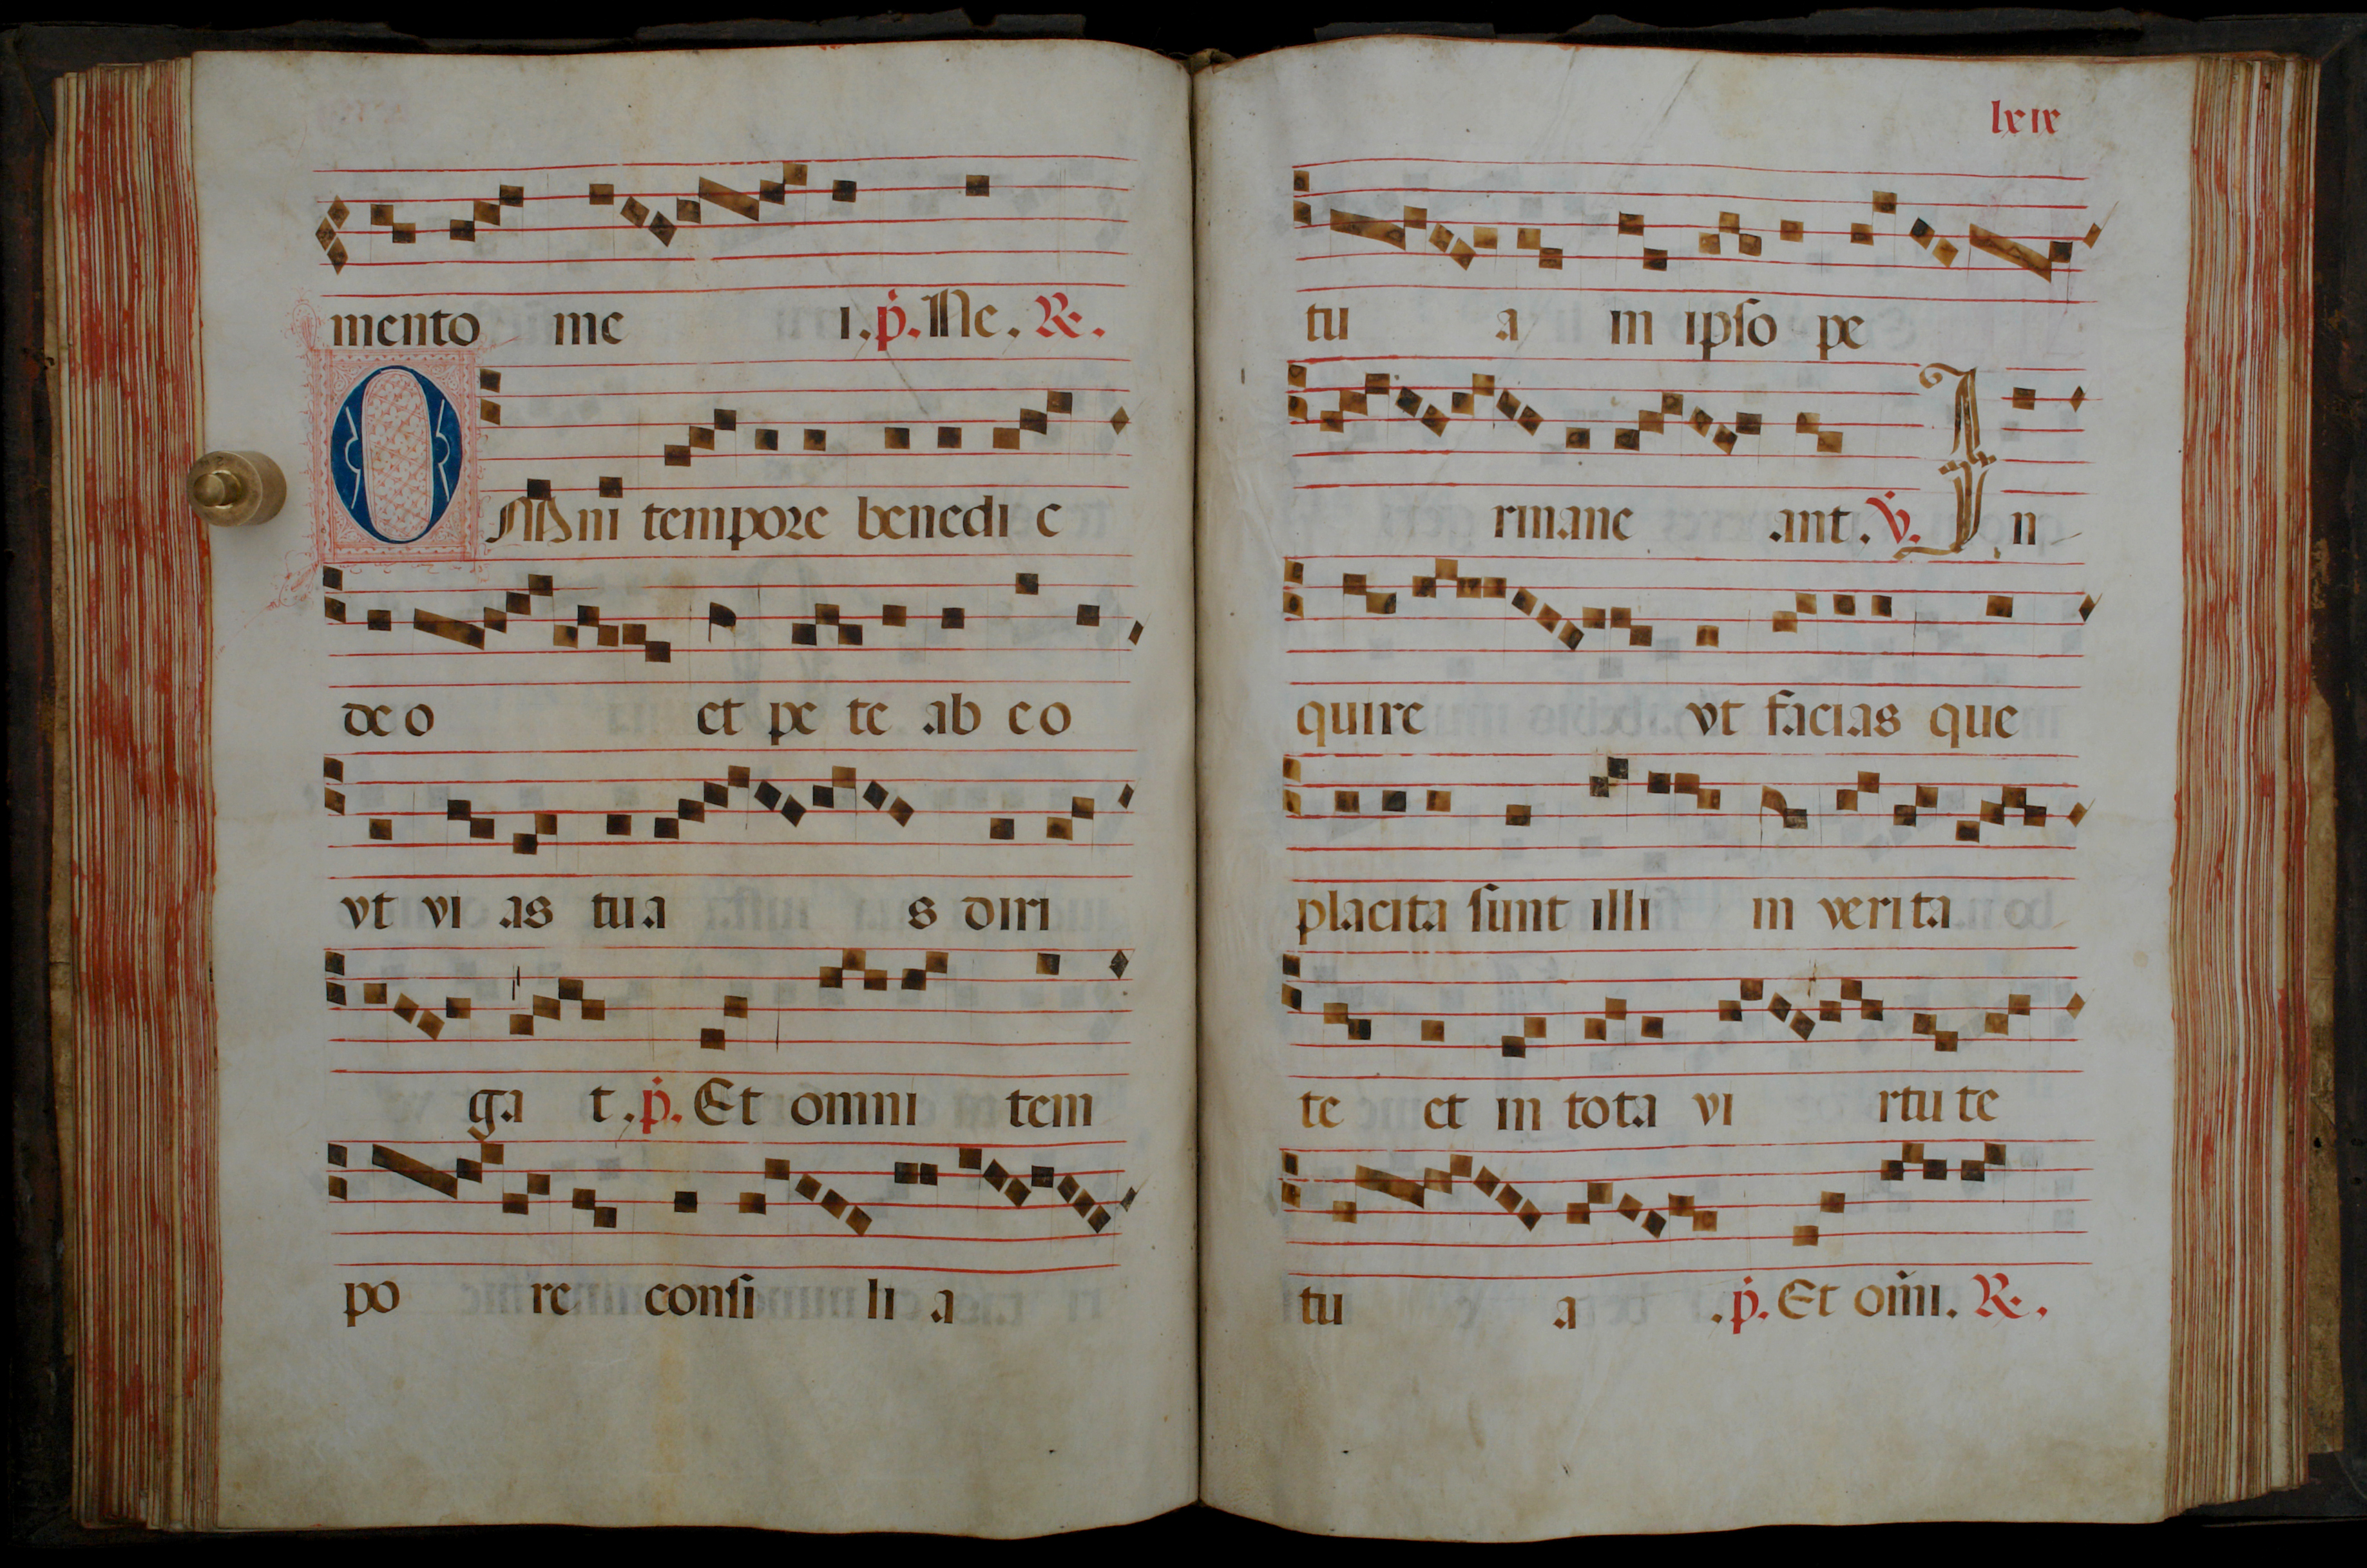 mento me i. p. Ne. R.
OMni tempore benedi c
deo et pe te ab eo
vt vi as tua s diri
ga t. p. Et omni tem
po re consi li a
lxix
tu a in ipso pe
rmane ant. V. In
quire vt facias que
placita sunt illi in verita
te et in tota vi rtu te
tu a . p. Et om̄i. R.